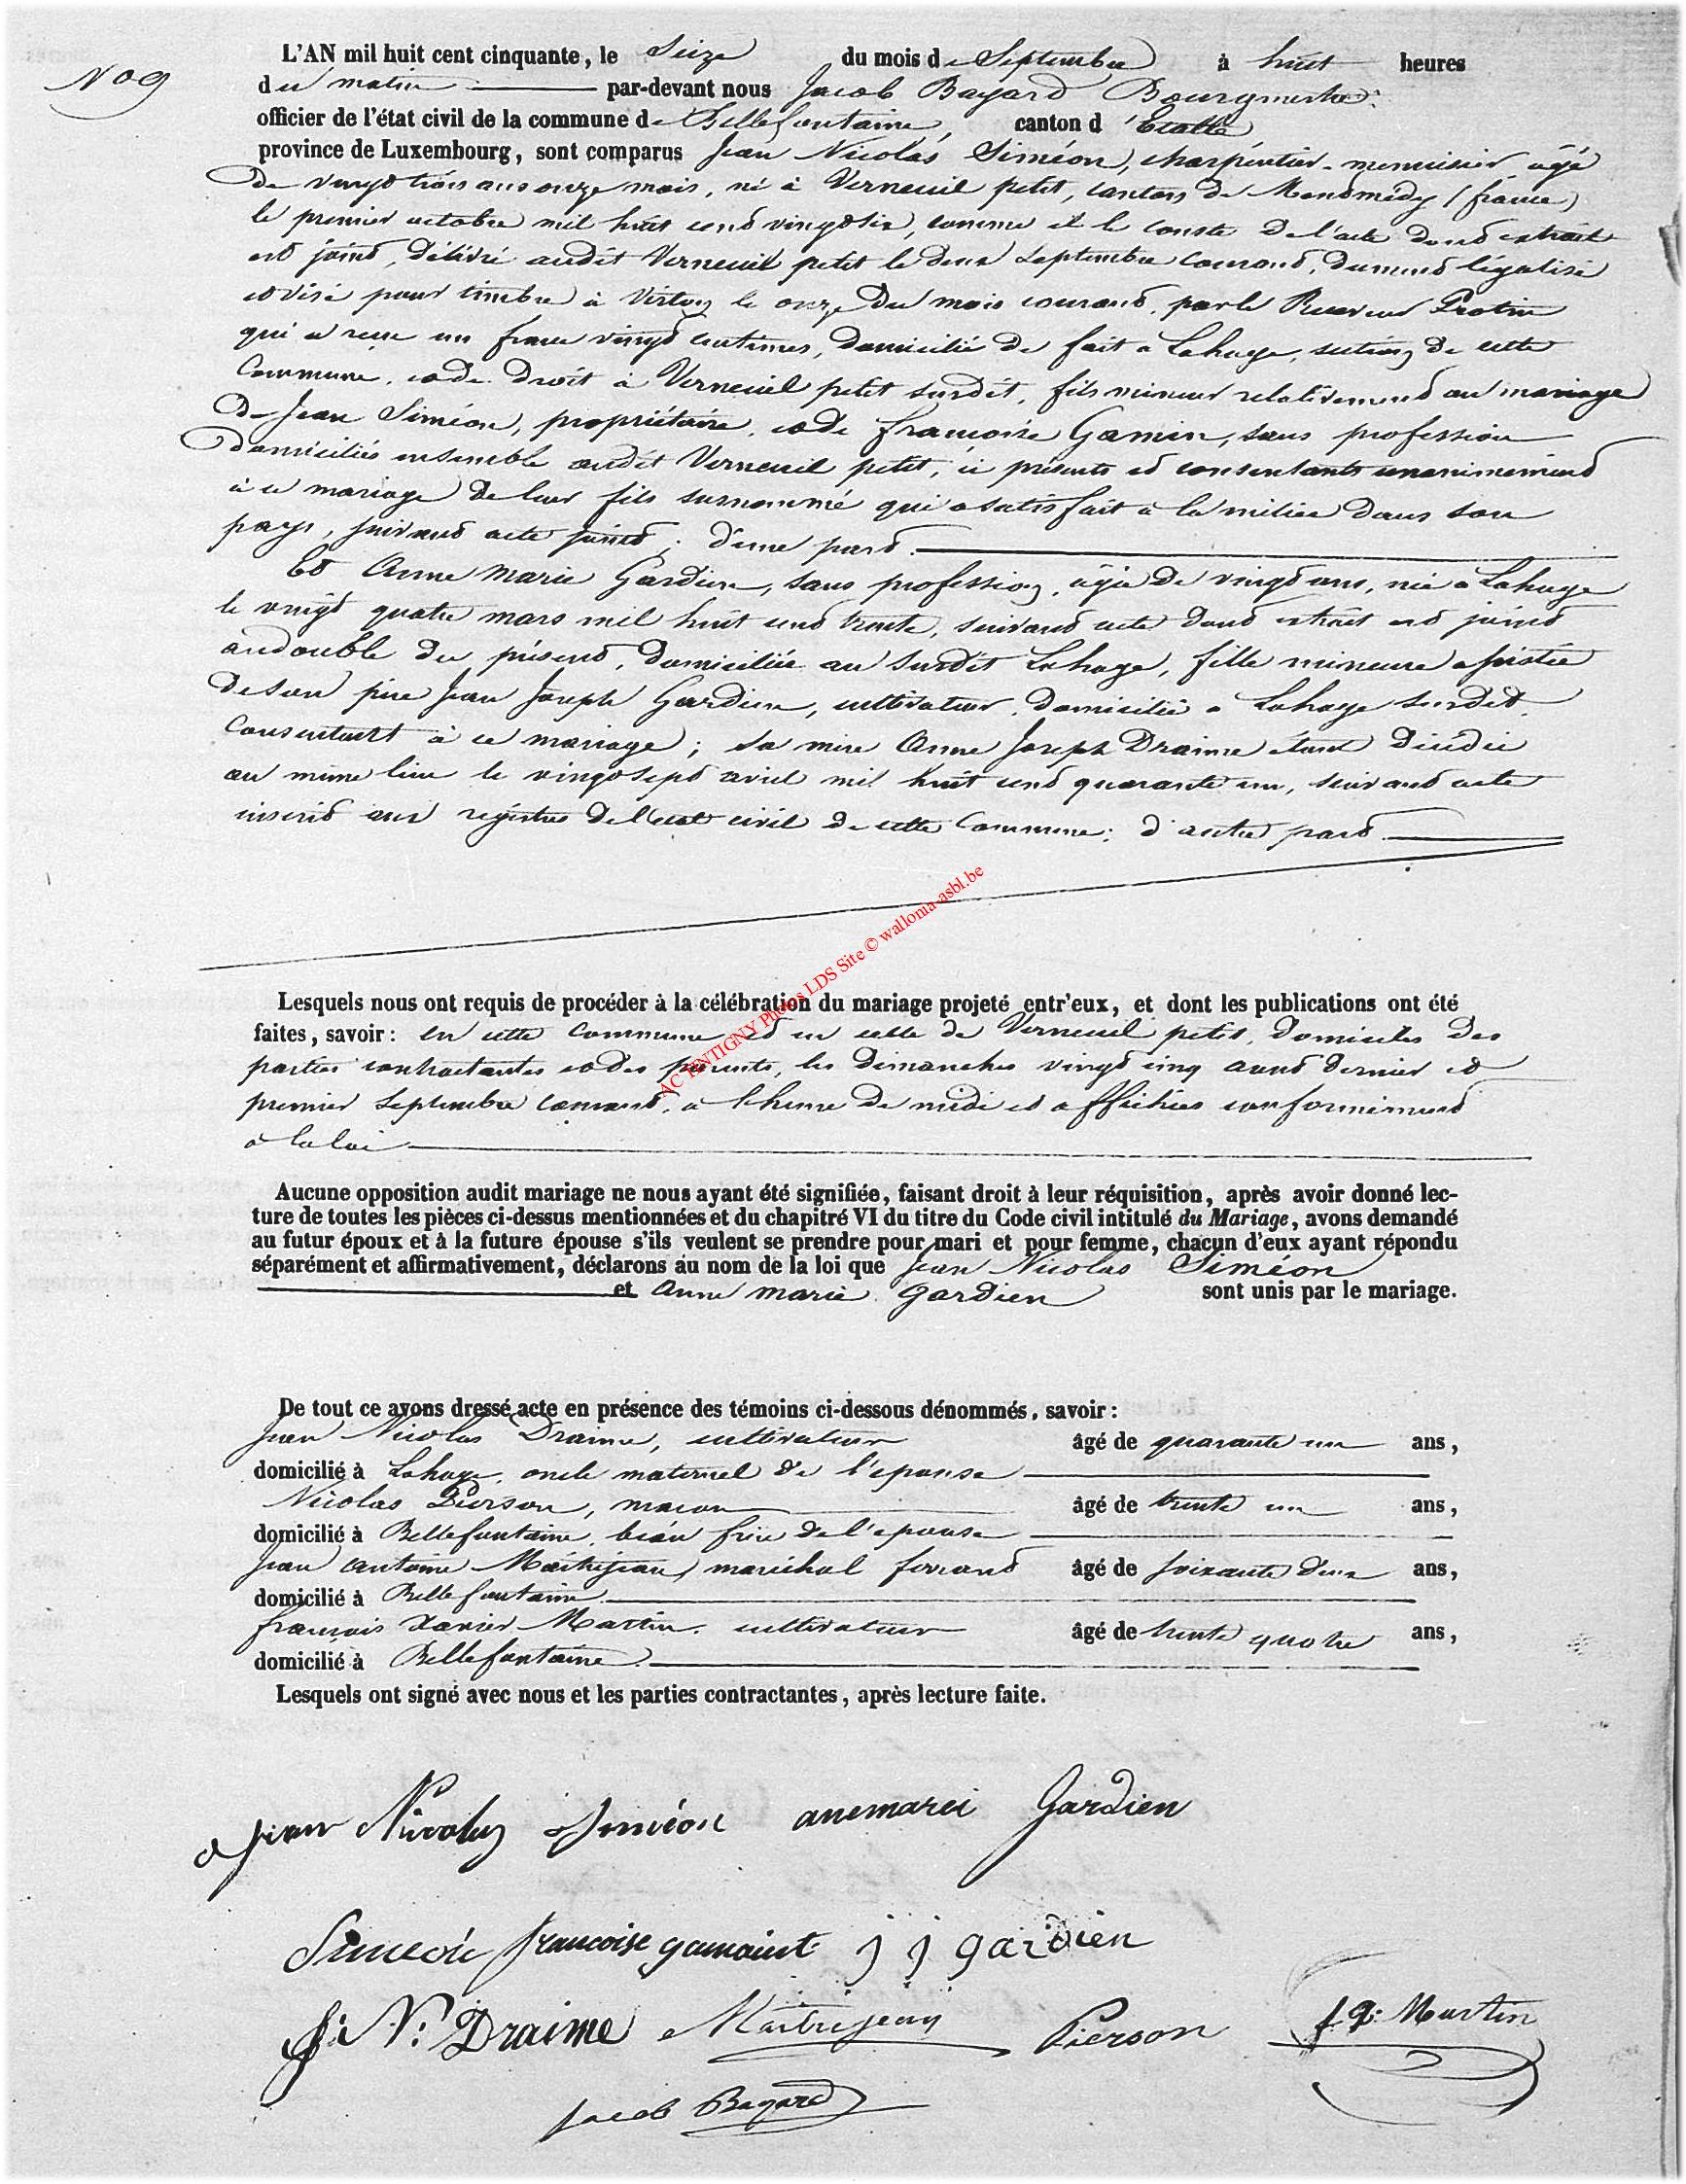 N° 9
L'AN mil huit cent cinquante, le Seize du mois de Septembre à huit heures
du matin par-devant nous Jacob Bayard Bourgmestre
officier de l'état civil de la commune de Bellefontaine, canton d'Etalle
province de Luxembourg, sont comparus Jean Nicolas Siméon, charpentier-menuisier âgé
de vingt trois ans onze mois, né à Verneuil petit, canton de Montmédy (france)
le premier octobre mil huit cent vingt six, comme il le conste de l'acte dont extrait
est joint, délivré audit Verneuil petit le deux Septembre courant, dument légalisé
et visé pour timbre à Virton le onze du mois courant, par le Receveur Protin
qui a reçu un franc vingt centimes, domicilié de fait à Lahage, section de cette
Commune, et de droit à Verneuil petit susdit, fils mineur relativement au mariage
de Jean Siméon, propriétaire, et de françoise Gamin, sans profession
domiciliés ensemble audit Verneuil petit, ici présents et consentants unanimement
à ce mariage de leur fils susnommé qui a satisfait à la milice dans son
pays, suivant acte joint; d'une part.
Et Anne Marie Gardien, sans profession, âgée de vingt ans, née à Lahage
le vingt quatre mars mil huit cent trente, suivant acte dont extrait est joint
au double du présent, domiciliée au susdit Lahage, fille mineure assistée
de son père Jean Joseph Gardien, cultivateur, domicilié à Lahage susdit,
consentant à ce mariage; sa mère Anne Joseph Draime étant décédée
au même lieu le vingt sept avril mil huit cent quarante un, suivant acte
inscrit aux registres de l'état civil de cette Commune; d'autre part
AC TINTIGNY Photos LDS Site © wallonia-asbl.be
Lesquels nous ont requis de procéder à la célébration du mariage projeté entr'eux, et dont les publications ont été
faites, savoir: en cette commune et en celle de Verneuil petit, domiciles des
parties contractantes et des parents, les dimanches vingt cinq août dernier et
premier Septembre courant, à l'heure de midi et affichées conformément
à la loi
Aucune opposition audit mariage ne nous ayant été signifiée, faisant droit à leur réquisition, après avoir donné lec-
ture de toutes les pièces ci-dessus mentionnées et du chapitré VI du titre du Code civil intitulé du Mariage, avons demandé
au futur époux et à la future épouse s'ils veulent se prendre pour mari et pour femme, chacun d'eux ayant répondu
séparément et affirmativement, déclarons au nom de la loi que Jean Nicolas Siméon
et Anne marie Gardien sont unis par le mariage.
De tout ce avons dressé acte en présence des témoins ci-dessous dénommés, savoir:
Jean Nicolas Draime, cultivateur âgé de quarante un ans,
domicilié à Lahage, oncle maternel de l'epouse
Nicolas Pierson, macon âgé de trente un ans,
domicilié à Bellefontaine, beau frère de l'epouse
Jean Antoine Maitrejean, maréchal ferrant âgé de soixante deux ans,
domicilié à Bellefontaine
françois Xavier Martin, cultivateur âgé de trente quatre ans,
domicilié à Bellefontaine
Lesquels ont signé avec nous et les parties contractantes, après lecture faite.
Jean Nicolas Siméon anemarei Gardien
Simeon francoise gamaint j j gardien
J: N: Draime Maitrejean Pierson f x: Martin
Jacob Bayard